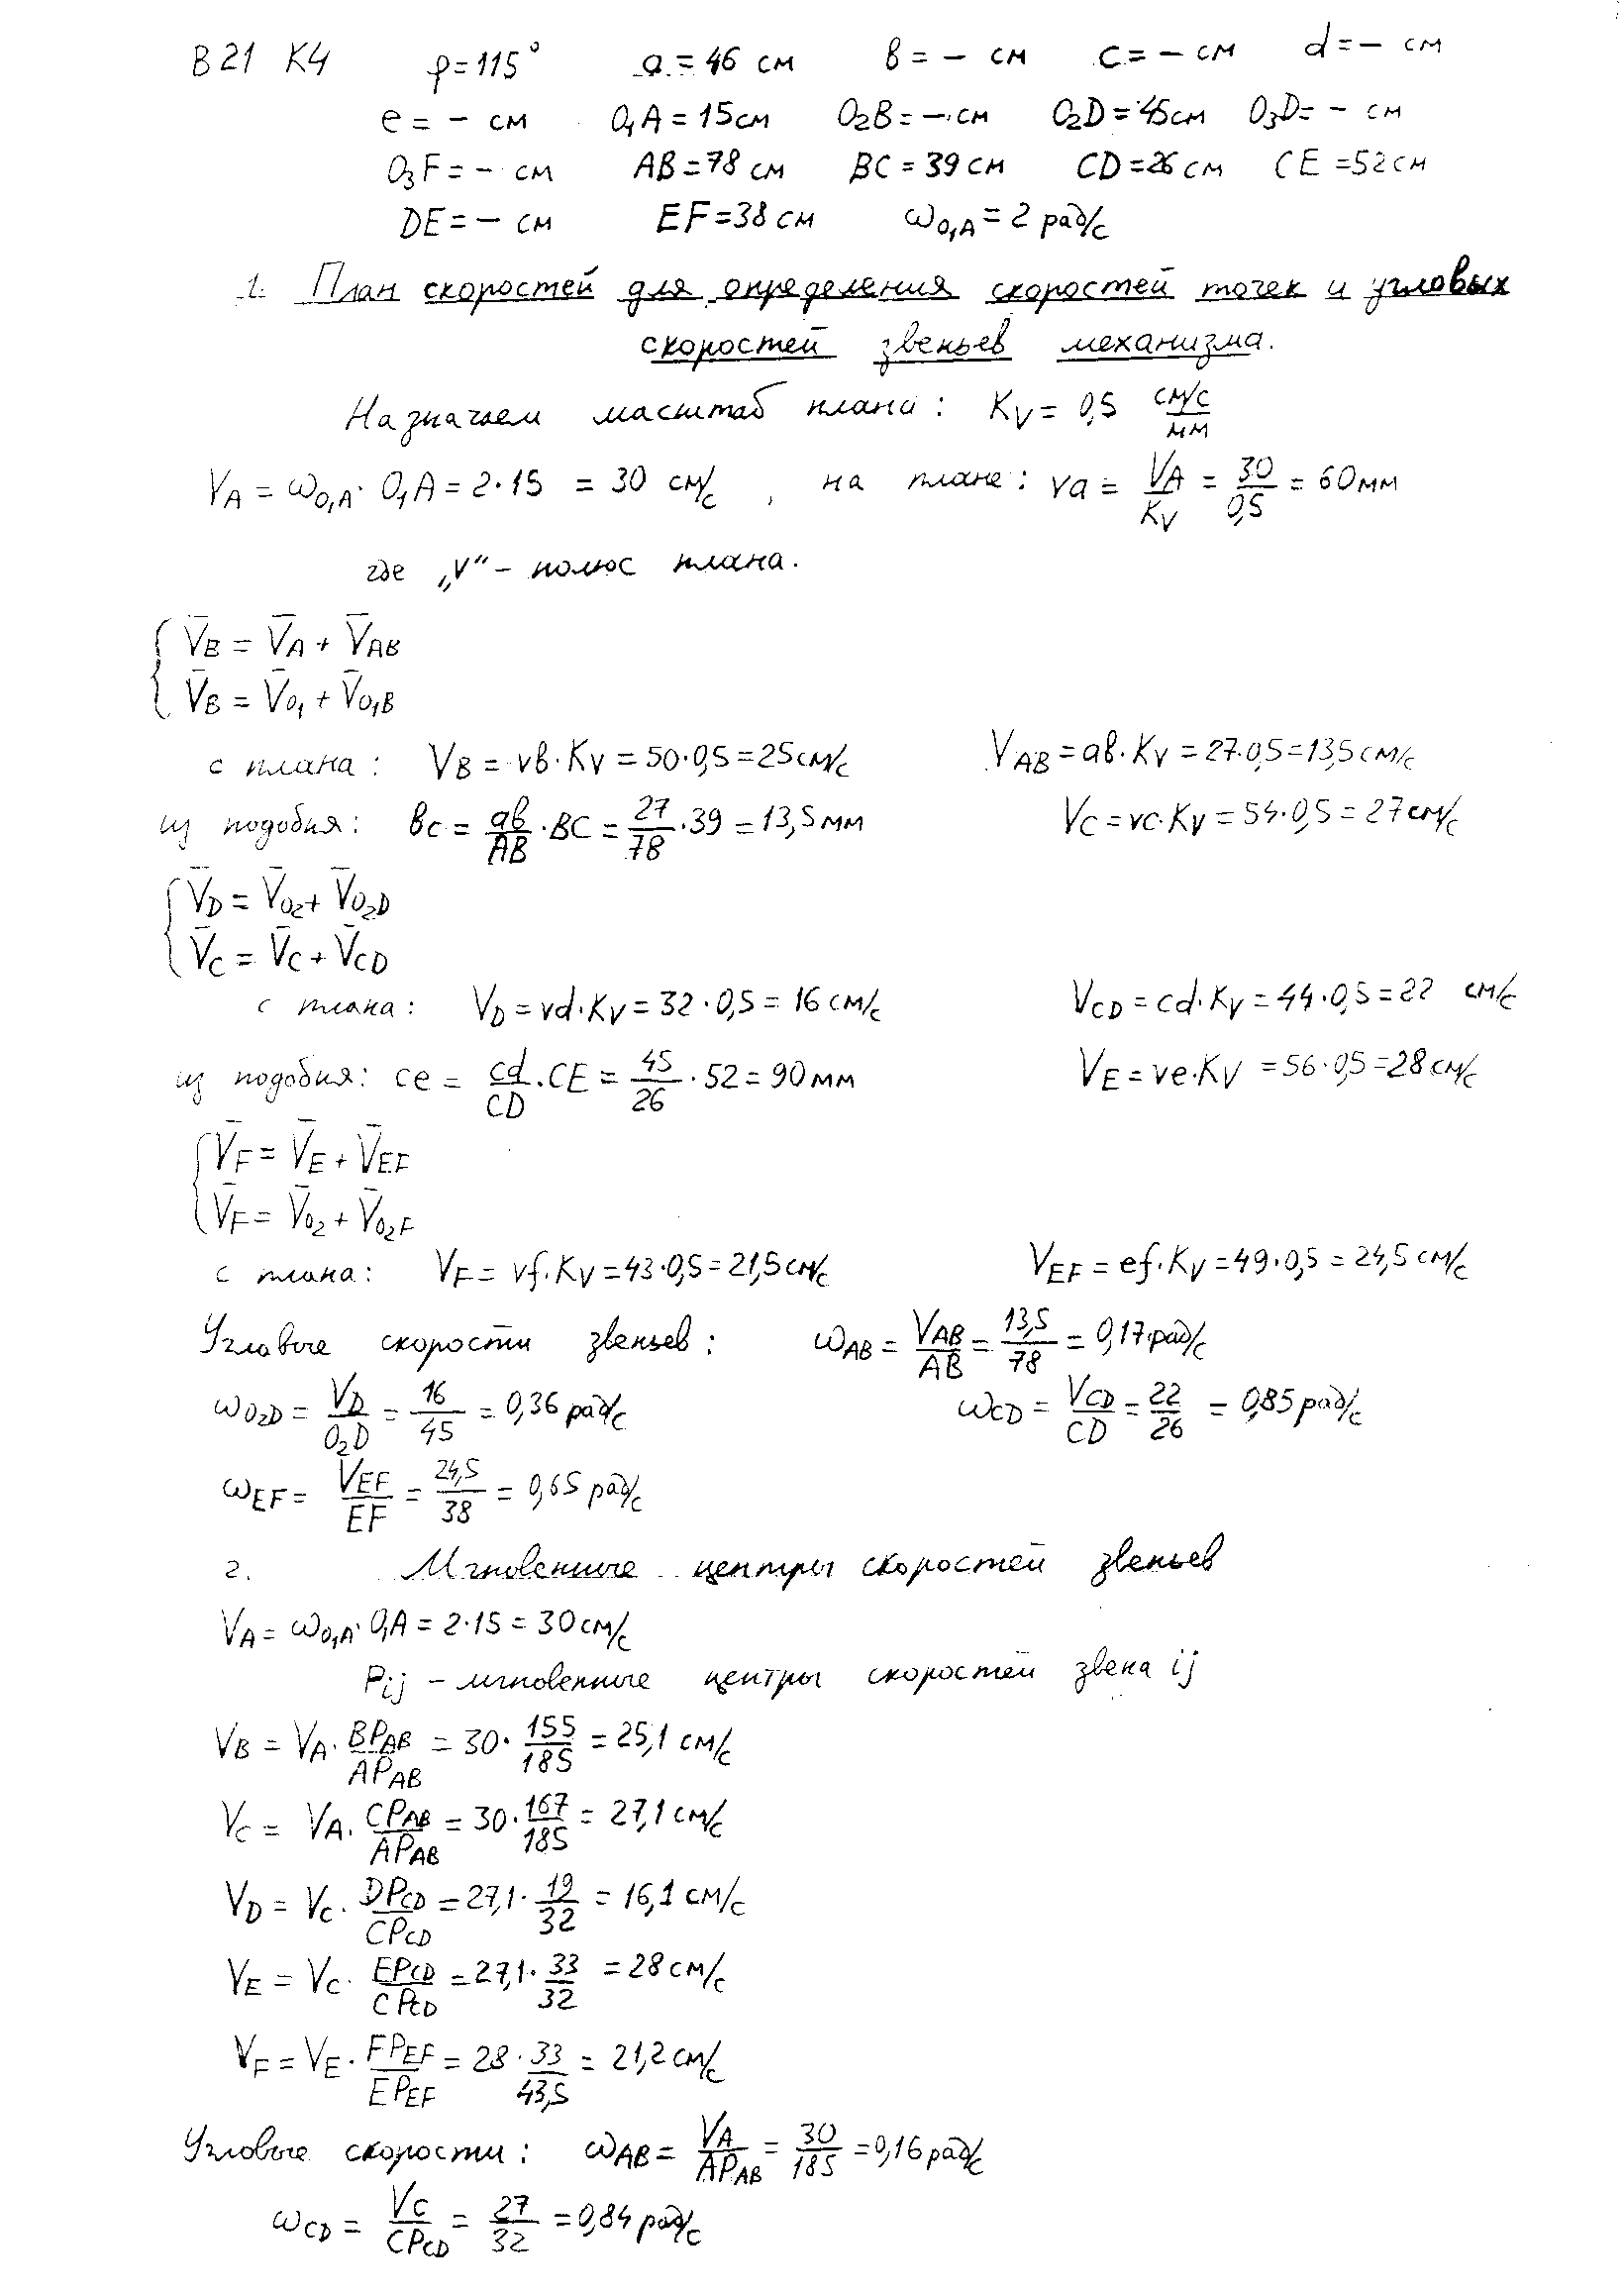 В21 К4 φ=115° a=46 см в=− см с=− см d=− см
e=− см O₁A=15см O₂B=−см O₂D=45см O₃D=− см
O₃F=− см AB=78 см BC=39 см CD=26 см CE=52см
DE=− см EF=38 см ω_O₁A=2 рад/с
1. План скоростей для определения скоростей точек и угловых
скоростей звеньев механизма.
Назначаем масштаб плана: K_V=0,5 см/с/мм
V_A=ω_O₁A·O₁A=2·15=30 см/с, на плане: va=V_A/K_V=30/0,5=60мм
где „v“ - полюс плана.
V̄_B=V̄_A+V̄_AB
V̄_B=V̄_O₁+V̄_O₁B
с плана: V_B=vв·K_V=50·0,5=25см/с V_AB=aв·K_V=27·0,5=13,5см/с
из подобия: вc=aв/AB·BC=27/78·39=13,5мм V_C=vc·K_V=54·0,5=27см/с
V̄_D=V̄_O₂+V̄_O₂D
V̄_C=V̄_C+V̄_CD
с плана: V_D=vd·K_V=32·0,5=16см/с V_CD=cd·K_V=44·0,5=22 см/с
из подобия: ce=cd/CD·CE=45/26·52=90мм V_E=ve·K_V=56·0,5=28см/с
V̄_F=V̄_E+V̄_EF
V̄_F=V̄_O₂+V̄_O₂F
с плана: V_F=vf·K_V=43·0,5=21,5см/с V_EF=ef·K_V=49·0,5=24,5см/с
Угловые скорости звеньев: ω_AB=V_AB/AB=13,5/78=0,17рад/с
ω_O₂D=V_D/O₂D=16/45=0,36рад/с ω_CD=V_CD/CD=22/26=0,85рад/с
ω_EF=V_EF/EF=24,5/38=0,65 рад/с
2. Мгновенные центры скоростей звеньев
V_A=ω_O₁A·O₁A=2·15=30см/с
P_ij - мгновенные центры скоростей звена ij
V_B=V_A·BP_AB/AP_AB=30·155/185=25,1 см/с
V_C=V_A·CP_AB/AP_AB=30·167/185=27,1см/с
V_D=V_C·DP_CD/CP_CD=27,1·19/32=16,1 см/с
V_E=V_C·EP_CD/CP_CD=27,1·33/32=28см/с
V_F=V_E·FP_EF/EP_EF=28·33/43,5=21,2см/с
Угловые скорости: ω_AB=V_A/AP_AB=30/185=0,16рад/с
ω_CD=V_C/CP_CD=27/32=0,84рад/с